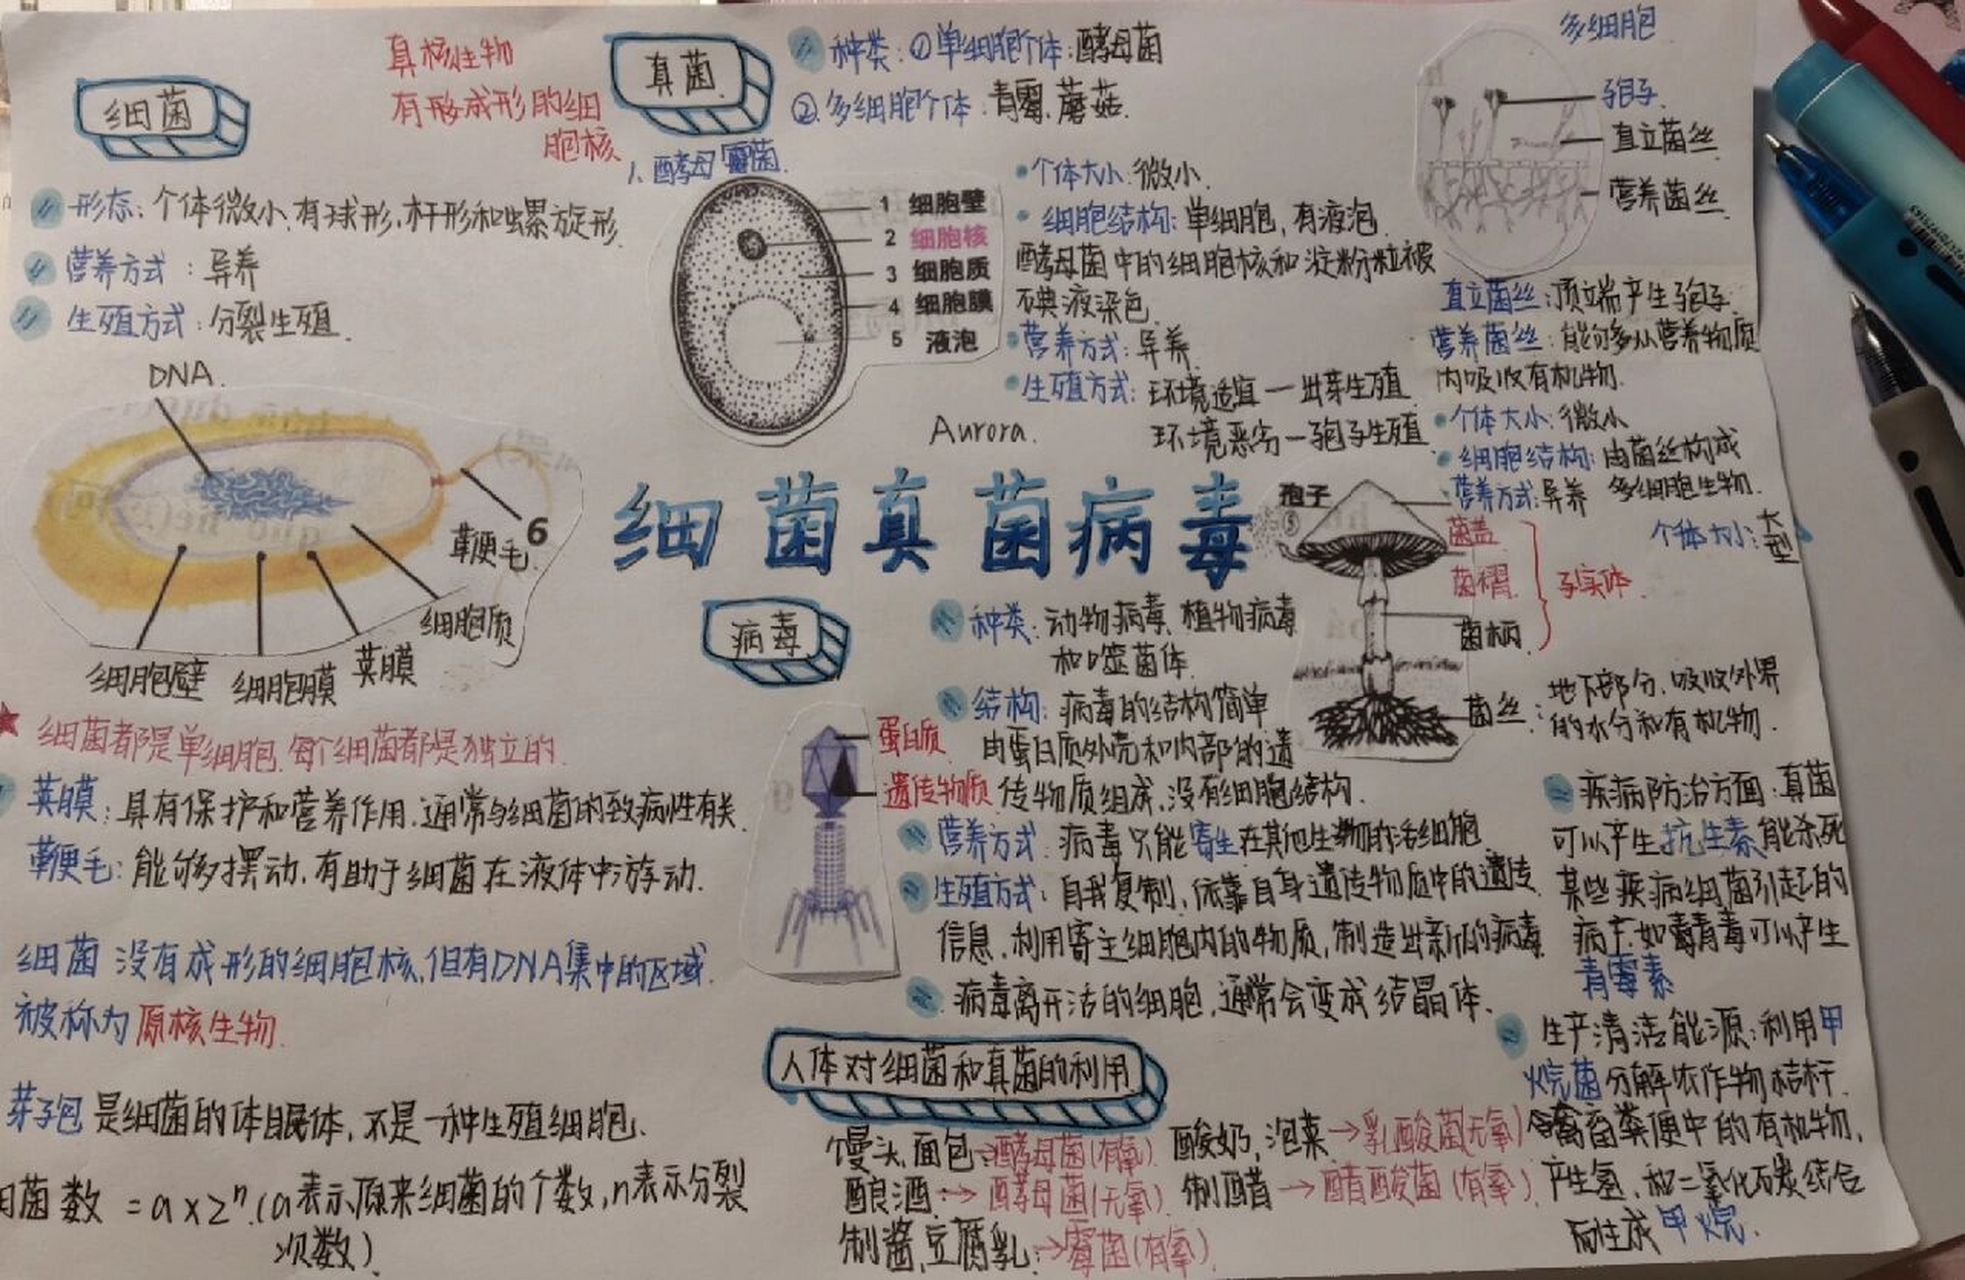 细菌
形态：个体微小.有球形.杆形和螺旋形
营养方式：异养
生殖方式：分裂生殖.
DNA.
鞭毛6
细胞质
荚膜
细胞膜
细胞壁
细菌都是单细胞.每个细菌都是独立的.
荚膜：具有保护和营养作用.通常与细菌的致病性有关.
鞭毛：能够摆动.有助于细菌在液体中游动.
细菌 没有成形的细胞核,但有DNA集中的区域.
被称为原核生物.
芽孢是细菌的休眠体,不是一种生殖细胞.
菌数 = a×2ⁿ.(a表示原来细菌的个数,n表示分裂
次数)
真核生物
有形成形的细
胞核
真菌.
种类：①单细胞个体：酵母菌
②.多细胞个体：青霉.蘑菇.
1.酵母菌.
1 细胞壁
2 细胞核
3 细胞质
4 细胞膜
5 液泡
个体大小:微小.
细胞结构：单细胞,有液泡.
酵母菌中的细胞核和淀粉粒被
碘液染色.
营养方式：异养.
生殖方式：环境适宜—出芽生殖
环境恶劣—孢子生殖.
Aurora.
多细胞
孢子.
直立菌丝.
营养菌丝.
直立菌丝：顶端产生孢子.
营养菌丝：能够从营养物质
内吸收有机物.
个体大小：微小
细胞结构：由菌丝构成
多细胞生物.
营养方式:异养
细菌真菌病毒
孢子
菌盖
菌褶.
子实体.
菌柄
个体大小：大型
菌丝：地下部分.吸收外界
的水分和有机物.
病毒
蛋白质
遗传物质
种类：动物病毒.植物病毒
和噬菌体.
结构：病毒的结构简单
由蛋白质外壳和内部的遗
传物质组成,没有细胞结构.
营养方式：病毒只能寄生在其他生物的活细胞.
生殖方式：自我复制,依靠自身遗传物质中的遗传
信息,利用寄主细胞内的物质,制造出新的病毒.
病毒离开活的细胞,通常会变成结晶体.
人体对细菌和真菌的利用
馒头.面包→酵母菌(有氧).
酿酒→酵母菌(无氧).
制酱,豆腐乳→霉菌(有氧).
酸奶,泡菜→乳酸菌(无氧)
制醋→醋酸菌(有氧).
疾病防治方面：真菌
可以产生抗生素能杀死
某些疾病细菌引起的
病.如青毒可以产生
青霉素
生产清洁能源：利用甲
烷菌分解农作物秸秆.
禽畜粪便中的有机物,
产生氢.和二氧化碳结合
而生成甲烷.